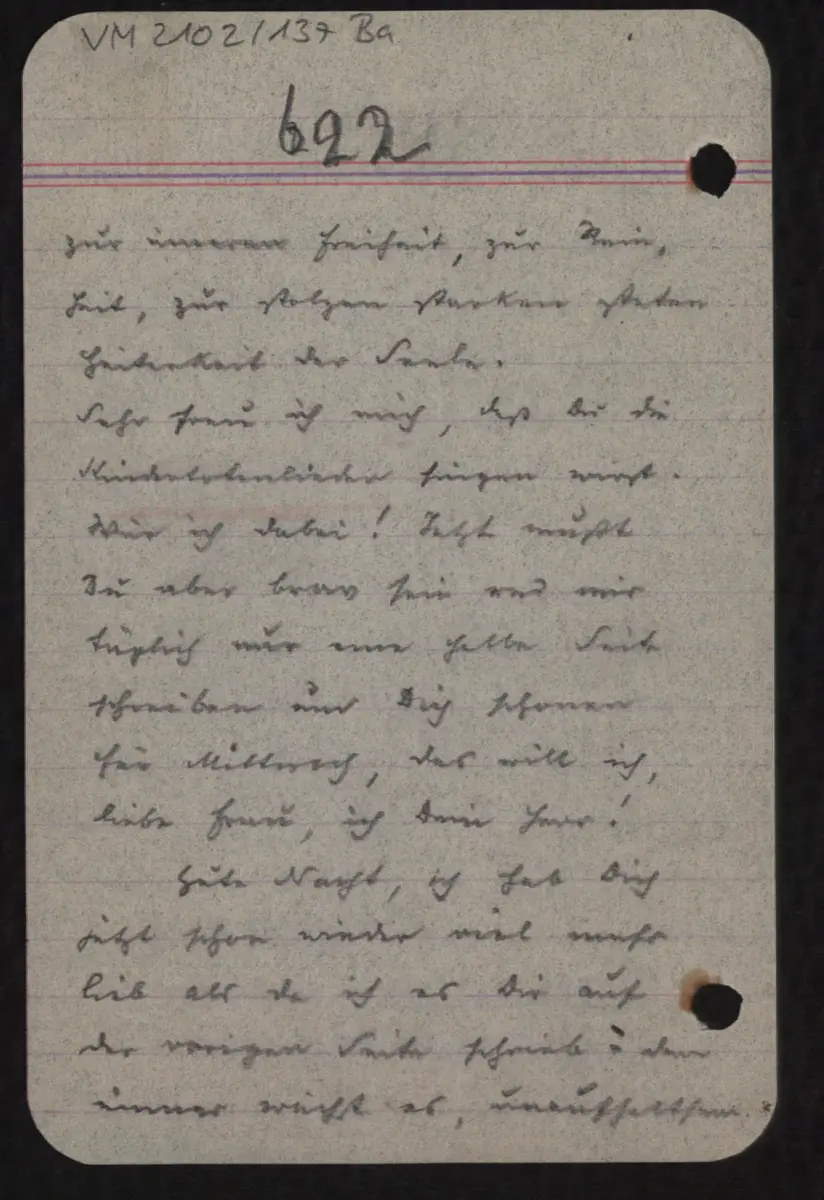 VM 2102/137 Ba
622
zur inneren Freiheit, zur Rein,
heit, zur stolzen starken steten
Heiterkeit der Seele.
Sehr freu ich mich, daß Du die
Kindertotenlieder singen wirst.
Wär ich dabei! Jetzt mußt
Du aber brav sein und mir
täglich nur eine halbe Seite
schreiben und Dich schonen
für Mittwoch, das will ich,
liebe Frau, ich Dein Herr!
Gute Nacht, ich hab Dich
jetzt schon wieder viel mehr
lieb als da ich es Dir auf
der vorigen Seite schrieb: denn
immer wächst es, unaufhaltsam.